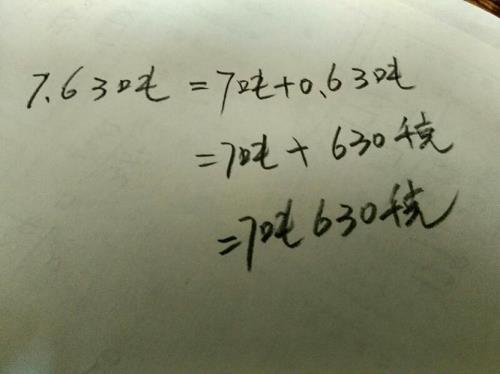 7.63吨=7吨+0.63吨
=7吨+630千克
=7吨630千克